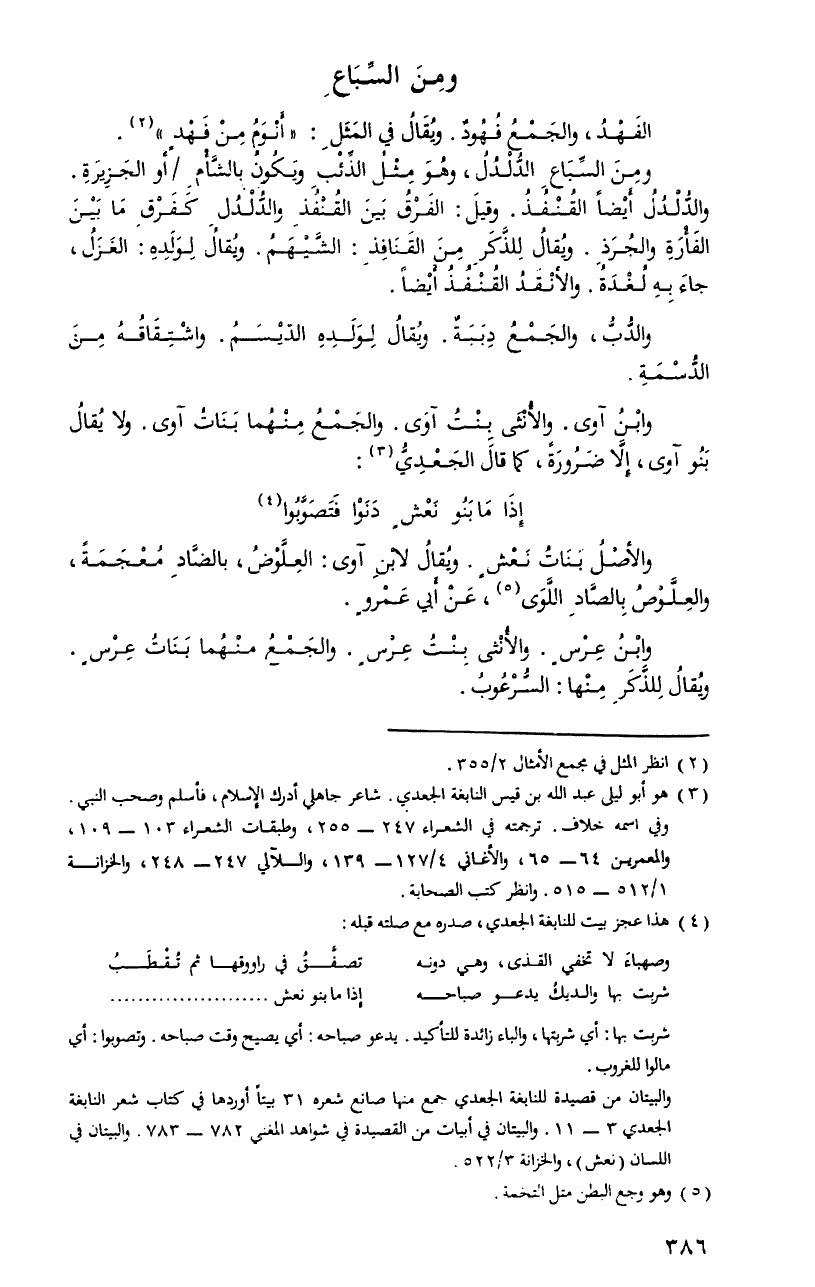 ومِنَ السِّبَاعِ
الفَهْدُ، والجَمْعُ فُهُودٌ. ويُقَالُ في المَثَلِ: «أَنْوَمُ مِنْ فَهْدٍ»(٢).
ومِنَ السِّبَاعِ الدُّلْدُلُ، وهُوَ مِثْلُ الذِّئْبِ ويَكُونُ بالشَّأْمِ / أو الجَزِيرَةِ.
والدُّلْدُلُ أَيْضاً القُنْفُذُ. وقيلَ: الفَرْقُ بَينَ القُنْفُذِ والدُّلْدُلِ كَفَرْقِ مَا بَيْنَ
الفَأْرَةِ والجُرَذِ. ويُقَالُ لِلذَّكَرِ مِنَ القَنَافِذِ: الشَّيْهَمُ. ويُقالُ لِوَلَدِهِ: الغَزَلُ،
جاءَ بِهِ لُغْدَةُ. والأنْقَدُ القُنْفُذُ أَيْضاً.
والدُّبُّ، والجَمْعُ دِبَبَةٌ. ويُقالُ لِوَلَدِهِ الدَّيْسَمُ. واشْتِقَاقُهُ مِنَ
الدُّسْمَةِ.
وابْنُ آوى. والأُنْثَى بِنْتُ آوَى. والجَمْعُ مِنْهُما بَنَاتُ آوى. ولا يُقالُ
بَنُو آوى، إلَّا ضَرُورَةً، كما قالَ الجَعْدِيُّ(٣):
إِذَا مَا بَنُو نَعْشٍ دَنَوْا فَتَصَوَّبُوا(٤)
والأَصْلُ بَنَاتُ نَعْشٍ. ويُقالُ لابْنِ آوى: العِلَّوْضُ، بالضَّادِ مُعْجَمَةً،
والعِلَّوْصُ بِالصَّادِ اللَّوَى(٥)، عَنْ أَبي عَمْرٍو.
وابْنُ عِرْسٍ. والأُنْثى بِنْتُ عِرْسٍ. والجَمْعُ مِنْهُما بَنَاتُ عِرْسٍ.
ويُقالُ لِلذَّكَرِ مِنْها: السُّرْعُوبُ.
(٢) انظر المثل في مجمع الأمثال ٣٥٥/٢.
(٣) هو أبو ليلى عبد الله بن قيس النابغة الجعدي. شاعر جاهلي أدرك الإسلام، فأسلم وصحب النبي.
وفي اسمه خلاف. ترجمته في الشعراء ٢٤٧ – ٢٥٥، وطبقات الشعراء ١٠٣ – ١٠٩،
والمعمرين ٦٤ – ٦٥، والأغاني ١٢٧/٤ – ١٣٩، والـلآلي ٢٤٧ – ٢٤٨، والخزانة
٥١٢/١ – ٥١٥. وانظر كتب الصحابة.
(٤) هذا عجز بيت للنابغة الجعدي، صدره مع صلته قبله:
وصهباءَ لا تخفي القذى، وهي دونه تصفَّقُ في راووقها ثم تُقْطَبُ
شربت بها والديكُ يدعو صباحه إذا ما بنو نعش ......................
شربت بها: أي شربتها، والباء زائدة للتأكيد. يدعو صباحه: أي يصيح وقت صباحه. وتصوبوا: أي
مالوا للغروب.
والبيتان من قصيدة للنابغة الجعدي جمع منها صانع شعره ٣١ بيتاً أوردها في كتاب شعر النابغة
الجعدي ٣ – ١١. والبيتان في أبيات من القصيدة في شواهد المغني ٧٨٢ – ٧٨٣. والبيتان في
اللسان (نعش)، والخزانة ٥٢٢/٣.
(٥) وهو وجع البطن مثل التخمة.
٣٨٦